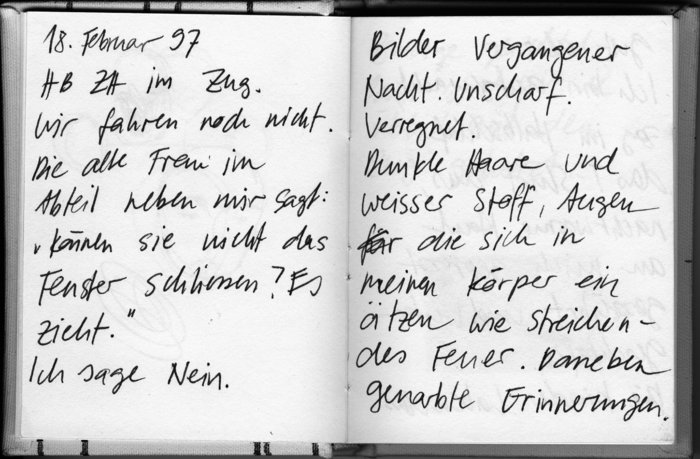 18. Februar 97
HB ZH im Zug.
Wir fahren noch nicht.
Die alte Frau im
Abteil neben mir sagt:
„können sie nicht das
Fenster schliessen? Es
zieht."
Ich sage Nein.
Bilder Vergangener
Nacht. Unscharf.
Verregnet.
Dunkle Haare und
weisser Stoff, Augen
die sich in
meinen Körper ein
ätzen wie streichen-
des Feuer. Daneben
genarbte Erinnerungen.